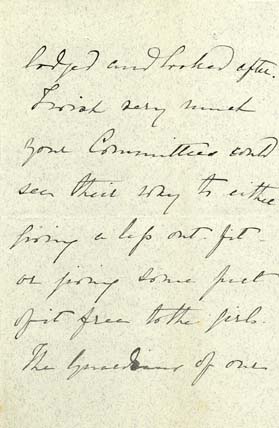 lodged and looked after.
I wish very much
your Committee could
see their way to either
giving a less out-fit
or giving some part
of it free to the girls.
The Guardians of one